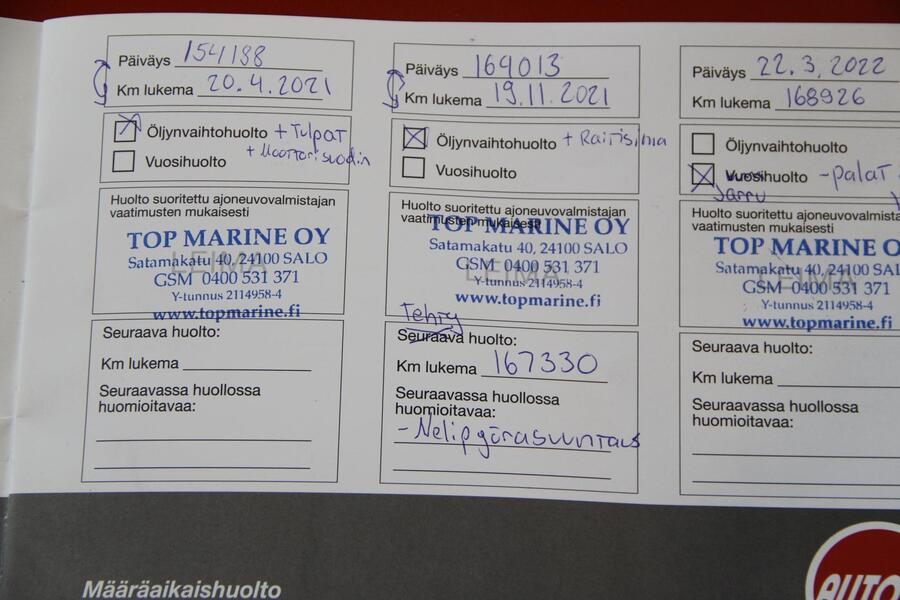 Päiväys 154188
Km lukema 20.4.2021
Öljynvaihtohuolto + Tulpat
+ Moottorisuodin
Vuosihuolto
Huolto suoritettu ajoneuvovalmistajan
vaatimusten mukaisesti
LEIMA
TOP MARINE OY
Satamakatu 40, 24100 SALO
GSM 0400 531 371
Y-tunnus 2114958-4
www.topmarine.fi
Seuraava huolto:
Km lukema
Seuraavassa huollossa
huomioitavaa:
Päiväys 164013
Km lukema 19.11.2021
Öljynvaihtohuolto + Raitisilma
Vuosihuolto
Huolto suoritettu ajoneuvovalmistajan
vaatimusten mukaisesti
LEIMA
TOP MARINE OY
Satamakatu 40, 24100 SALO
GSM 0400 531 371
Y-tunnus 2114958-4
www.topmarine.fi
Tehty
Seuraava huolto:
Km lukema 167330
Seuraavassa huollossa
huomioitavaa:
- Nelipyöräsuuntaus
Päiväys 22.3.2022
Km lukema 168926
Öljynvaihtohuolto
Vuosihuolto - palat
Jarru
Huolto suoritettu ajoneuvovalmista
vaatimusten mukaisesti
LEIMA
TOP MARINE O
Satamakatu 40, 24100 SAL
GSM 0400 531 371
Y-tunnus 2114958-4
www.topmarine.fi
Seuraava huolto:
Km lukema
Seuraavassa huollossa
huomioitavaa:
Määräaikaishuolto
AUTO